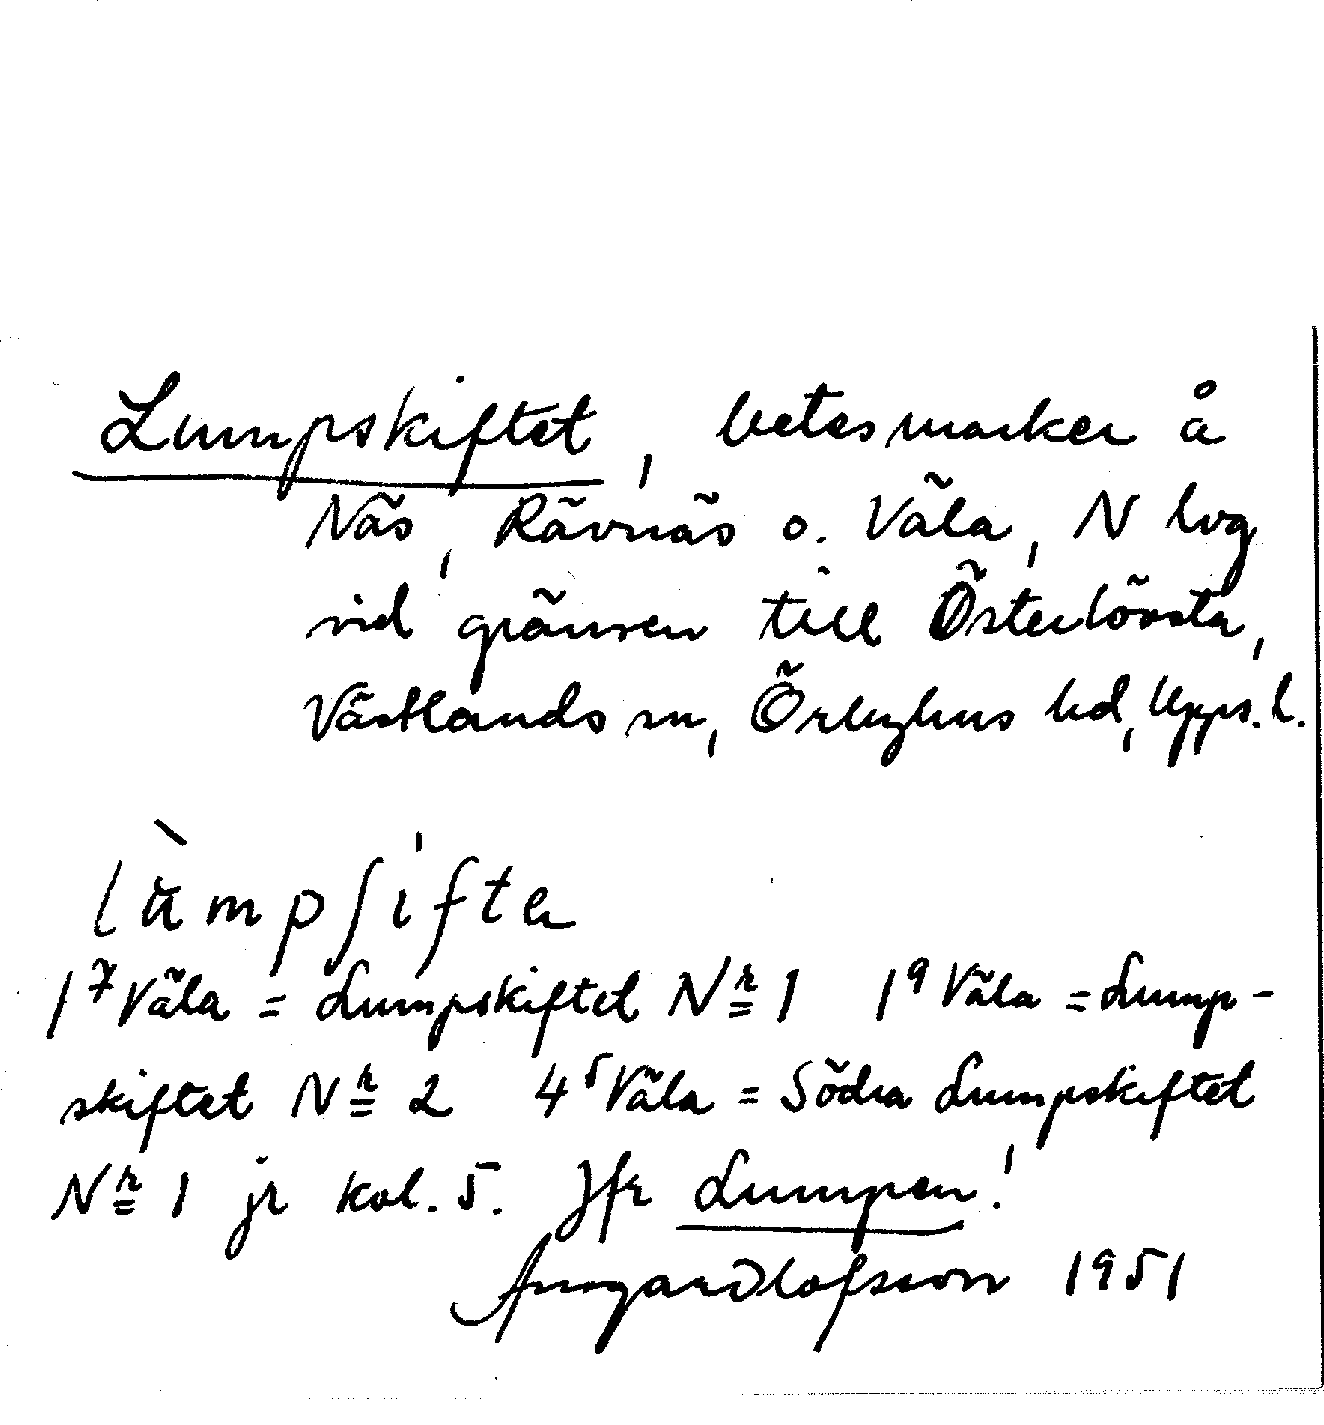 Lumpskiftet, betesmarker å
Näs, Rävnäs o. Väla, N hvg
vid gränsen till Österlövsta,
Västlands sn, Örbyhus hd, Upps. l.
lùmpʃifta
1⁷ Väla = Lumpskiftet Nr 1 1⁹ Väla = Lump-
skiftet Nr 2 4⁵ Väla = Södra Lumpskiftet
Nr 1 jr kol. 5. Jfr Lumpen!
Ansgar Olofsson 1951